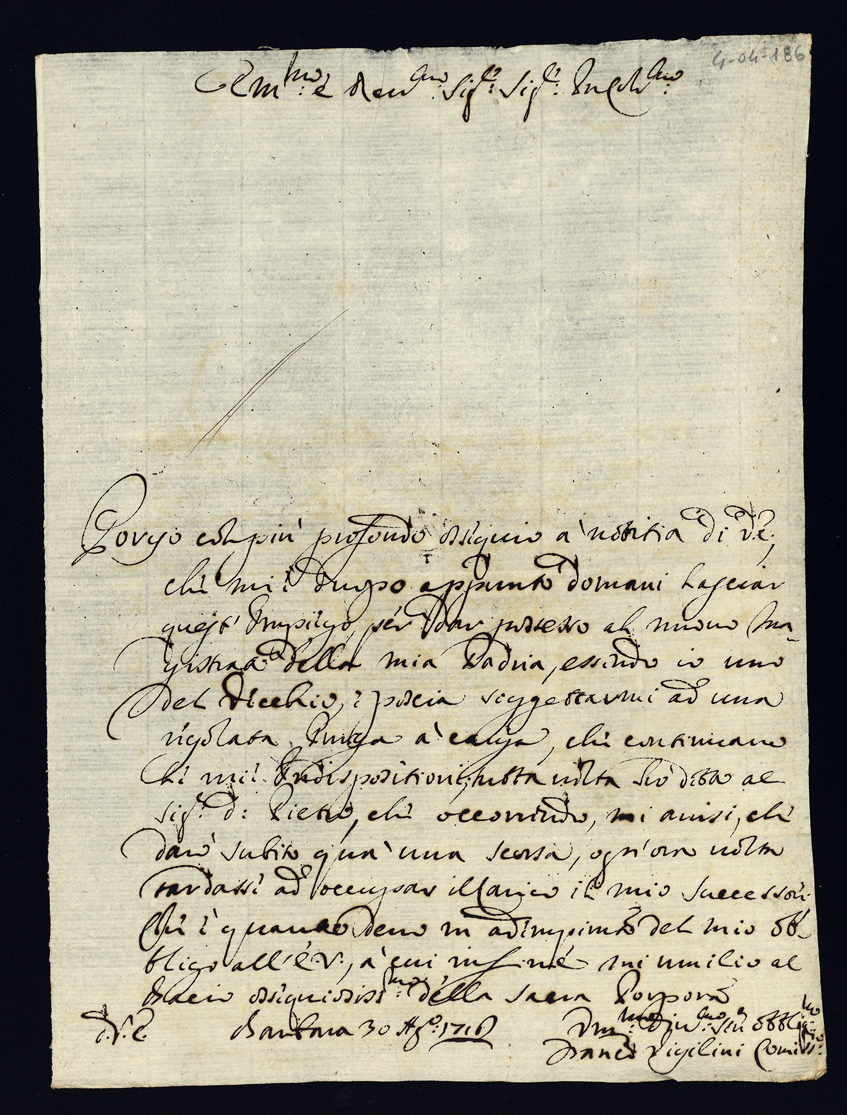 4-04-186
Em.mo e Rev.mo Sig.re Sig.re P.ne Col.mo
Porgo col più profondo ossequio a' notitia di V.E.,
che mi è d'uopo appunto domani lasciar
quest'Impiego, per dar possesso al nuovo Ma-
gistrato della mia Padria, essendo io uno
del Vecchio, e poscia soggettarmi ad una
regolata Purga a' causa, che continuano
le mie Indispositioni, tutta volta hò detto al
Sig.r D: Pietro, che occorrendo, mi avisi, che
darò subito quà una scorsa, ogn'ora volta
tardasse ad occupar il Carico il mio successore
Che è quanto devo in adimpim.to del mio ob-
bligo all'E.V., a' cui in fine mi umilio al
Bacio ossequiosiss.mo della Sacra Porpora
D.V.E. Barbara 30 Ag.o 1716
Um.mo Div.mo Ser.e Obblig.mo
Franc.o Vigilini Comiss.rio